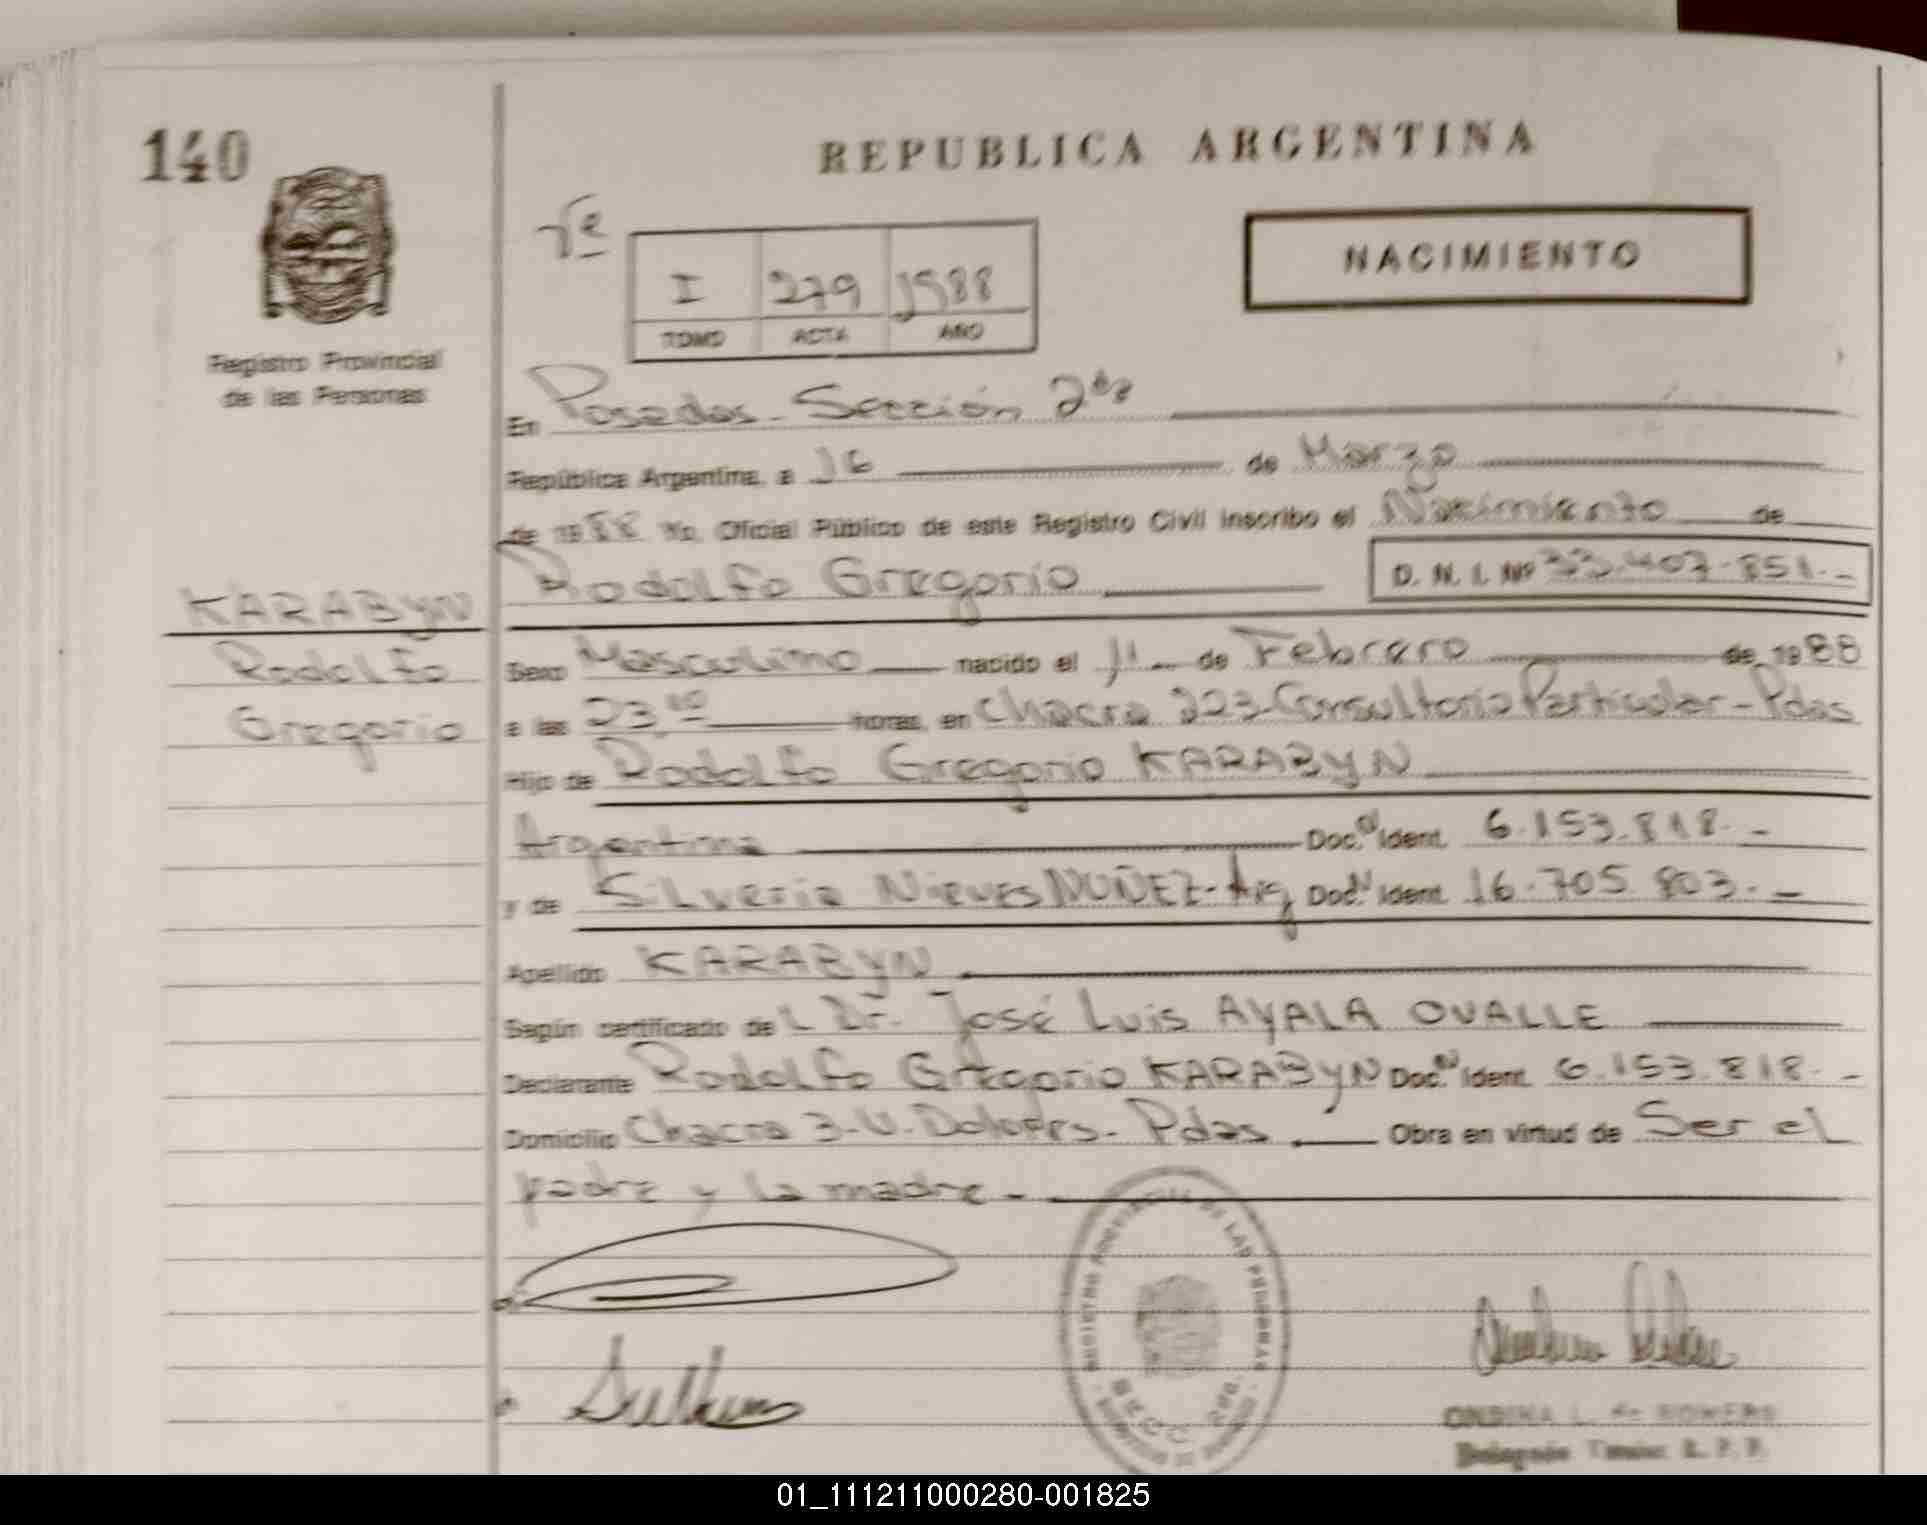 140
REPUBLICA ARGENTINA
NACIMIENTO
I 279 1988
TOMO ACTA AÑO
Registro Provincial
de las Personas
En Posadas - Sección 2da
República Argentina, a 16 de Marzo
de 1988 Yo, Oficial Público de este Registro Civil inscribo el Nacimiento de
Rodolfo Gregorio D. N. I. Nº 33.407.851.-
KARABYN
Rodolfo
Gregorio
Sexo Masculino nacido el 1º de Febrero de 1988
a las 23 horas, en Chacra 223-Consultorio Particular - Pdas
Hijo de Rodolfo Gregorio KARABYN
Argentina Doc. Ident. 6.153.818.-
y de Silveria Nieves NUÑEZ - Arg Doc. Ident. 16.705.803.-
Apellido KARABYN
Según certificado del Dr. José Luis AYALA OVALLE
Declarante Rodolfo Gregorio KARABYN Doc. Ident. 6.153.818.-
Domicilio Chacra 3-V. Dolores - Pdas Obra en virtud de Ser el
padre y la madre -
ONDINA L. de ROMERO
01_111211000280-001825